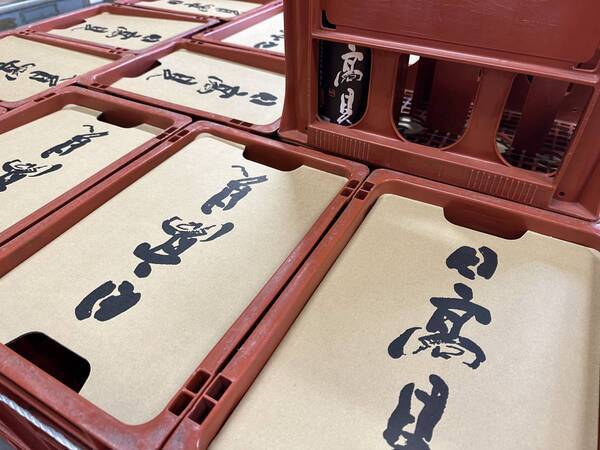 日高見
日高見
日高見
日高見
日高見
日高見
高見